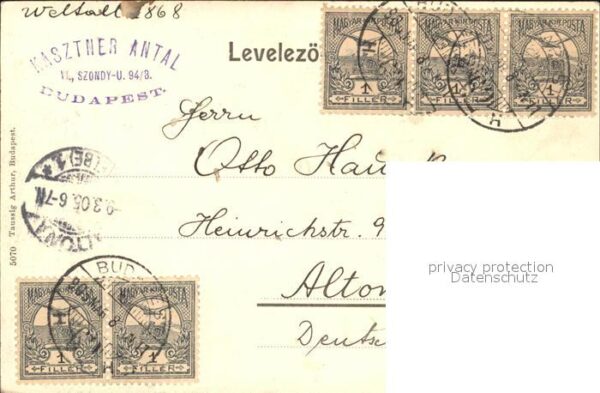 Weltall 1868
KASZTNER ANTAL
VI., SZONDY-U. 94/3.
BUDAPEST.
Levelező
MAGYAR KIR. POSTA
1
FILLÉR
MAGYAR KIR. POSTA
1
FILLÉR
MAGYAR KIR. POSTA
1
FILLÉR
Herrn
Otto
Heinrichstr. 9
Alton
Deuts
privacy protection
Datenschutz
5070 Taussig Arthur, Budapest.
ALTONA
9.3.05. 6-7N.
BUDAPEST
MAGYAR KIR. POSTA
1
FILLÉR
MAGYAR KIR. POSTA
1
FILLÉR